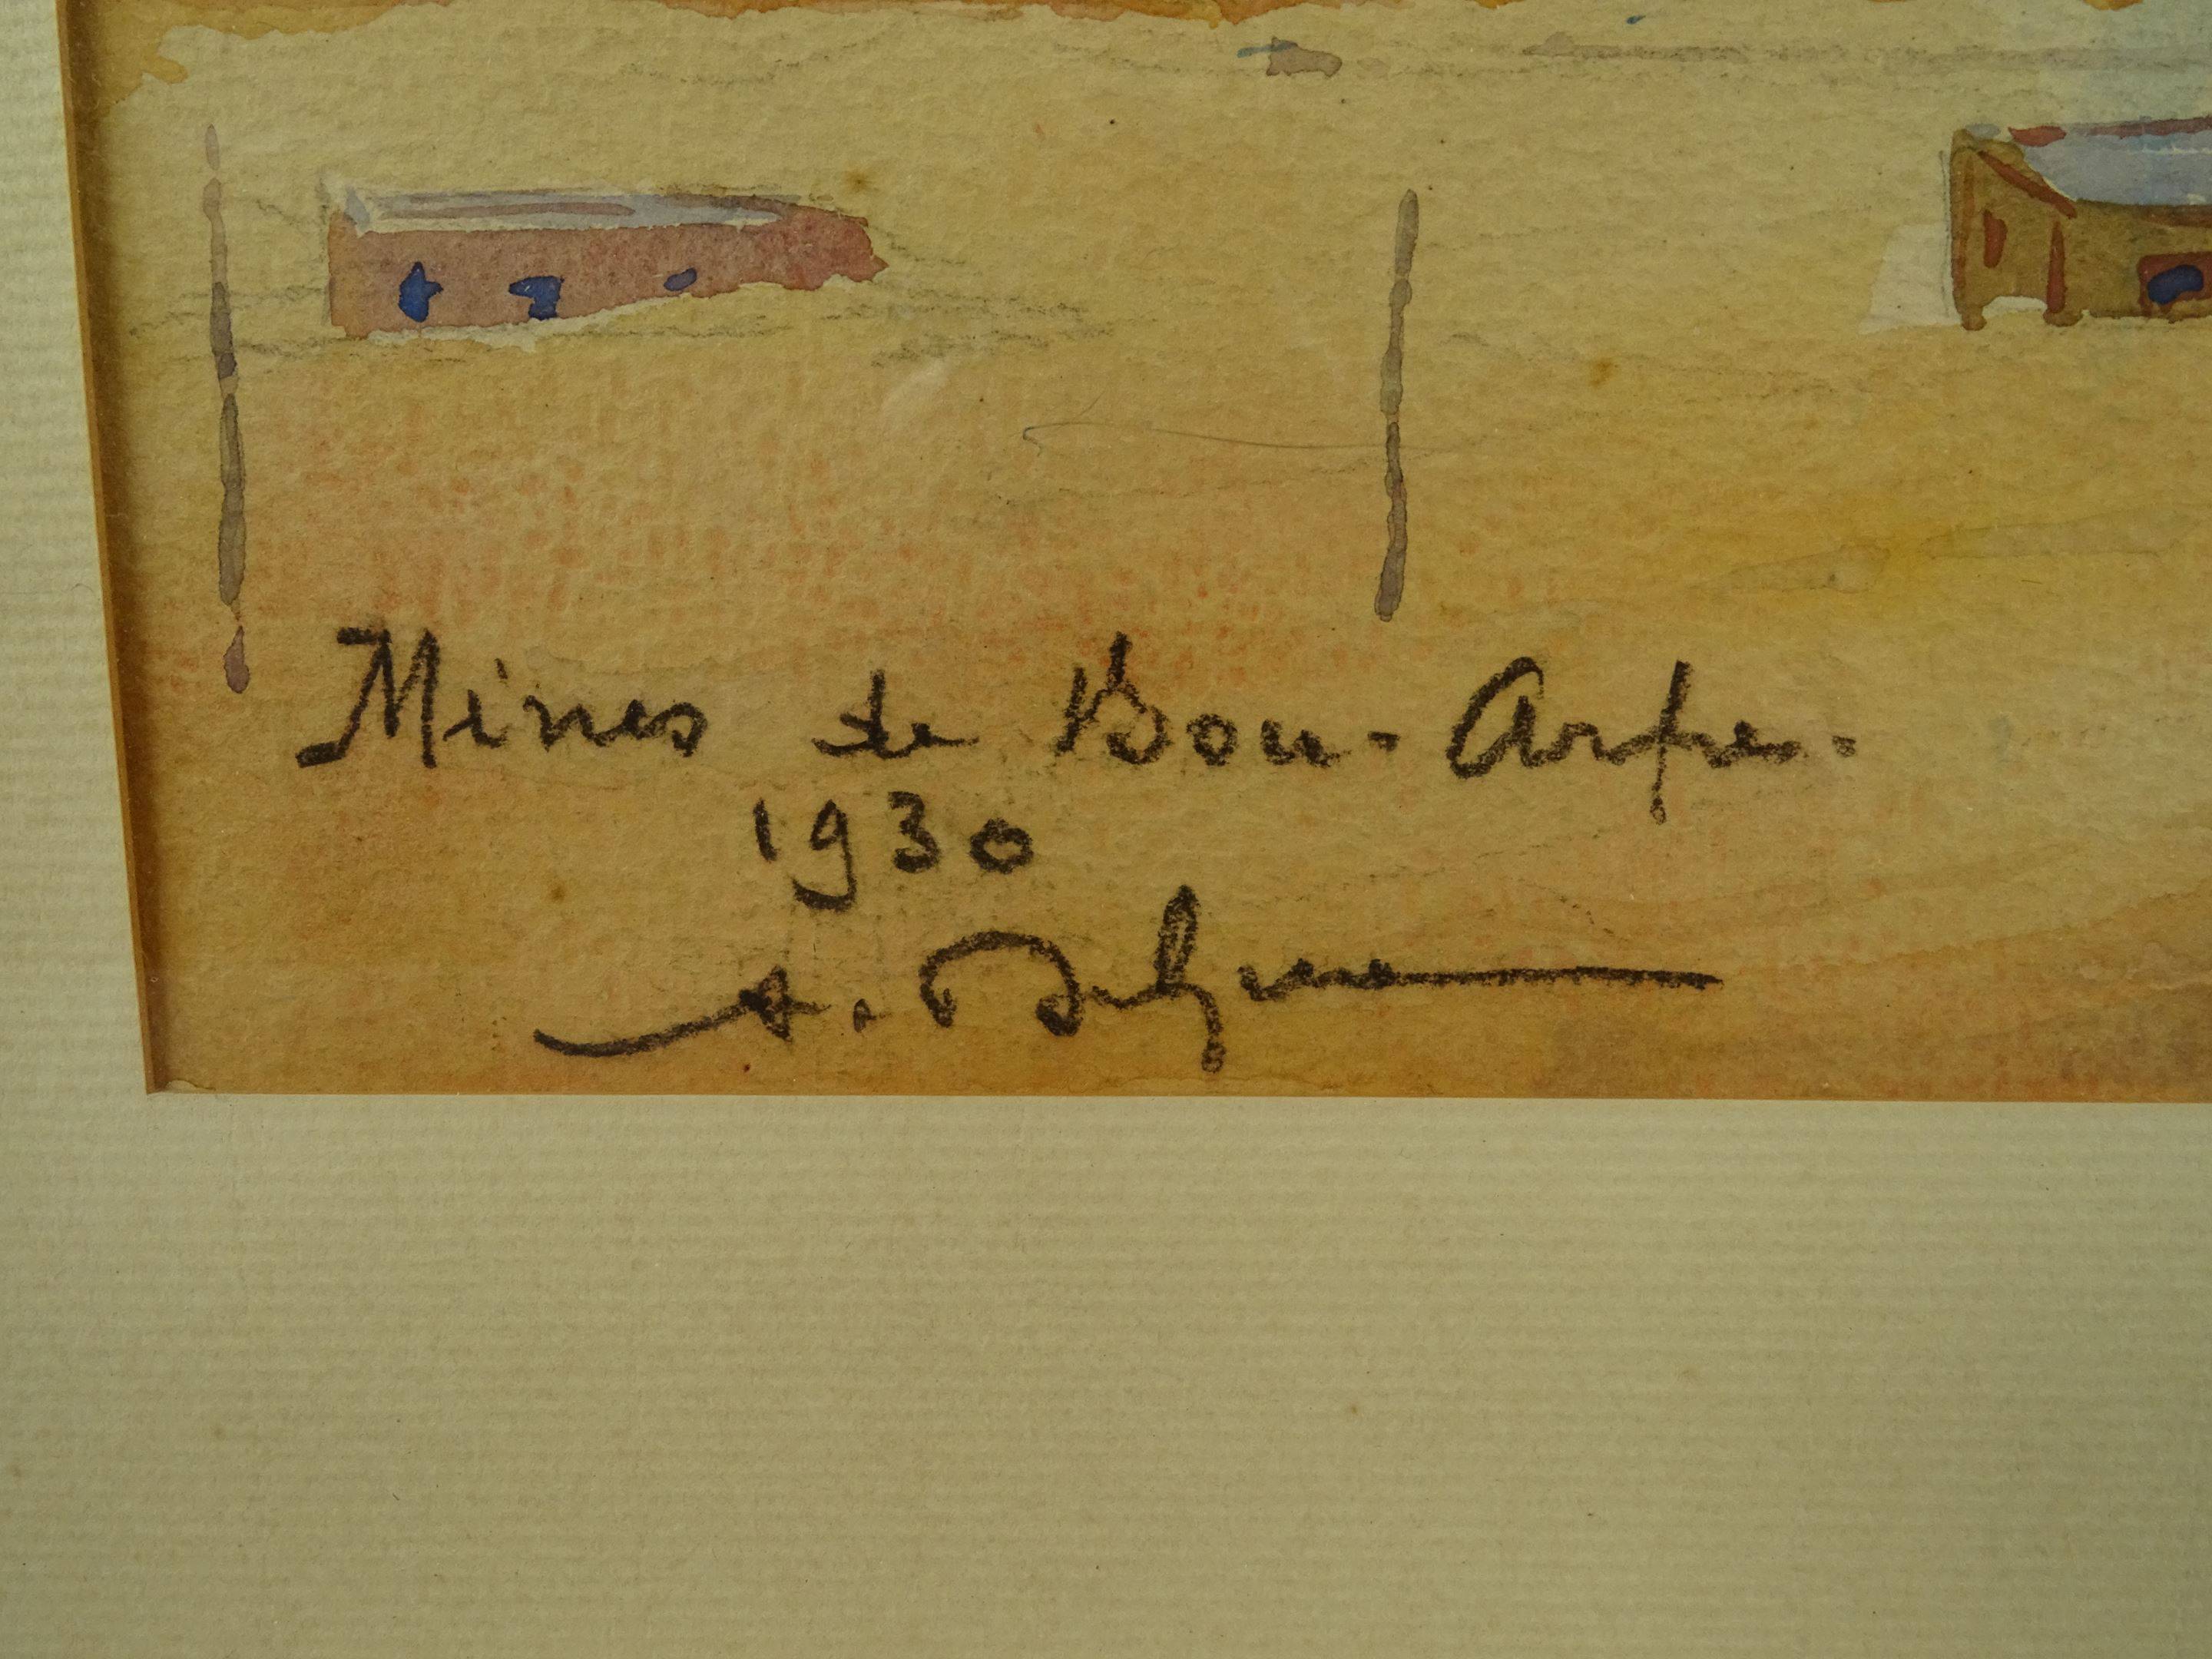 Mines de Bou-Arfa.
1930
A. Delzers